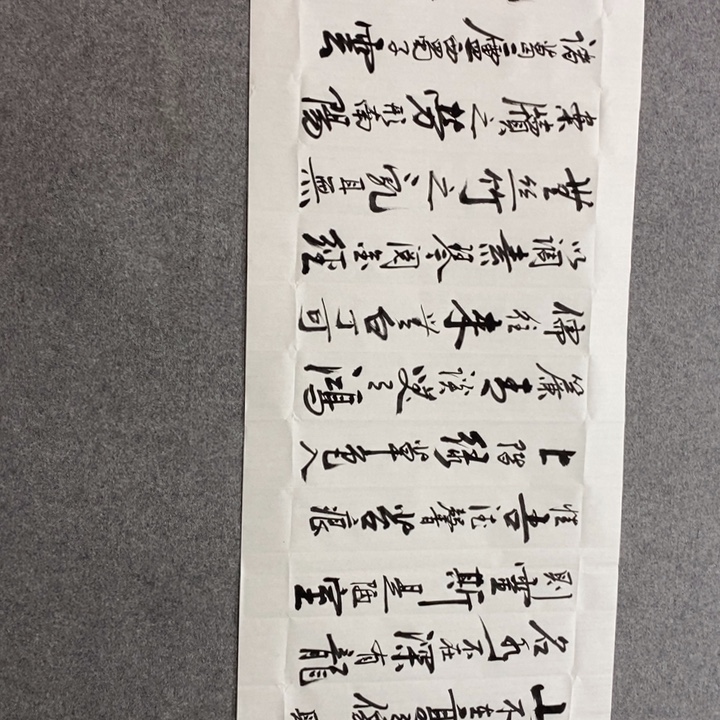 山不在高有仙則
名水不在深有龍
則靈斯是陋室
惟吾德馨苔痕
上階綠草色入
簾青談笑有鴻
儒往來無白丁可
以調素琴閱金經
無絲竹之亂耳無
案牘之勞形南陽
諸葛廬西蜀子雲